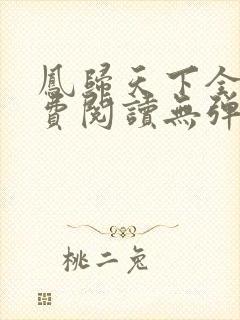 鳳歸天下全
費閱讀無彈
桃二兔